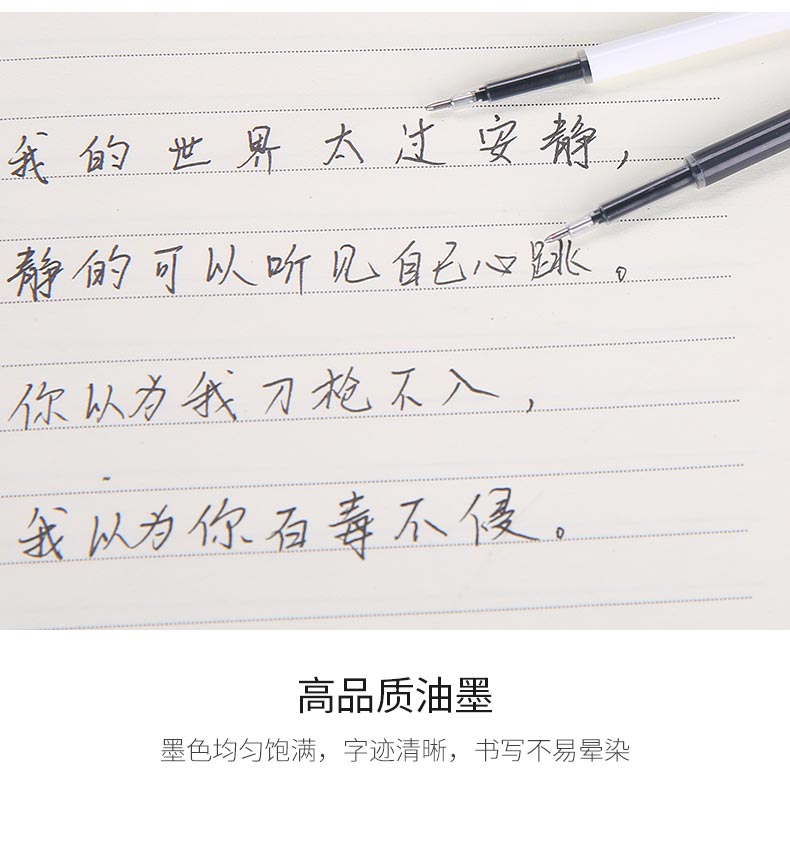 我的世界太过安静，
静的可以听见自己心跳。
你以为我刀枪不入，
我以为你百毒不侵。
高品质油墨
墨色均匀饱满，字迹清晰，书写不易晕染